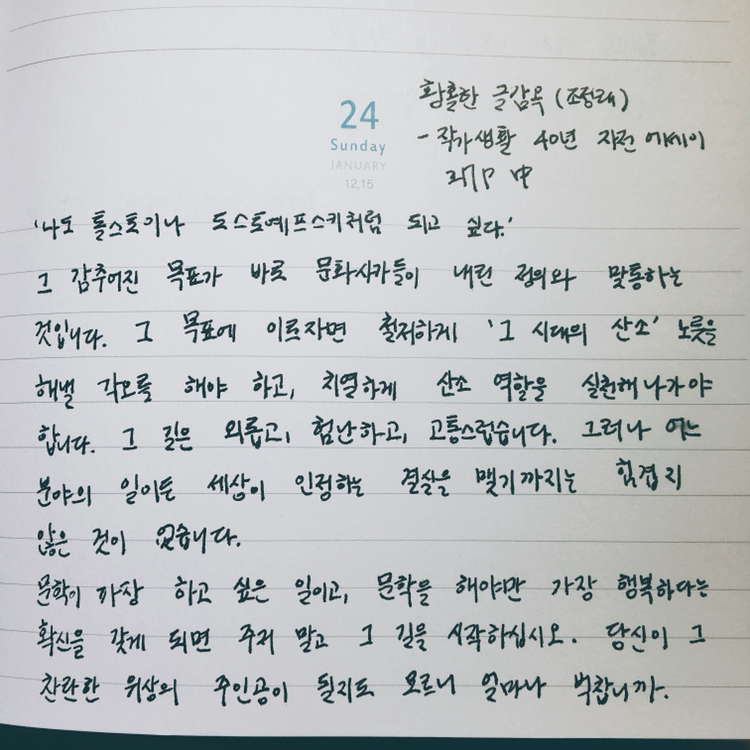 황홀한 글감옥 (조정래)
- 작가생활 40년 자전 에세이
中
24
Sunday
JANUARY
12.15
'나도 톨스토이나 도스토예프스키처럼 되고 싶다.'
그 감추어진 목표가 바로 문화사가들이 내린 정의와 맞통하는
것입니다. 그 목표에 이르자면 철저하게 '그 시대의 산소' 노릇을
해낼 각오를 해야 하고, 치열하게 산소 역할을 실천해 나가야
합니다. 그 길은 외롭고, 험난하고, 고통스럽습니다. 그러나 어느
분야의 일이든 세상이 인정하는 결실을 맺기까지는 힘겹지
않은 것이 없습니다.
문학이 가장 하고 싶은 일이고, 문학을 해야만 가장 행복하다는
확신을 갖게 되면 주저 말고 그 길을 시작하십시오. 당신이 그
찬란한 위상의 주인공이 될지도 모르니 얼마나 벅찹니까.